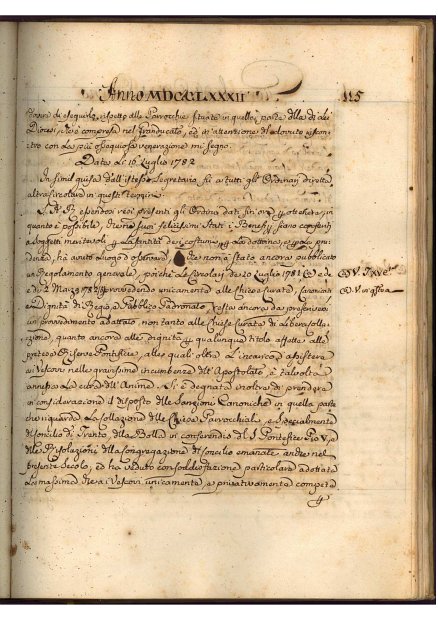 Anno MDCCLXXXII 115
rispetto alle Parrocchie situate in quella parte della di lei
Diocesi, che è compresa nel Granducato, ed in attenzione di
tro con la più ossequiosa venerazione mi segno.
Data li 16 Luglio 1782
In simil guisa dall' istesso Segretario fù a tutti gli Ordinarj diretta
altra circolare in questi termini
S. A. R. avendosi resi presenti gli Ordini dati fin ora
quanto è possibile, che nei suoi felicissimi Stati i Benefizj siano conferiti
a soggetti meritevoli per la santità dei costumi, per la dottrina, e per la pru
denza, ha avuto luogo di osservare che non è stato ancora pubblicato
un Regolamento generale, poichè le Circolari de 20 Luglio 1781 e de
di 2 Marzo 1782 provvedendo unicamente alle Chiese curate, Canonicati
e Dignità di Regio, e Pubblico Padronato, resta ancora da prescriversi
un provvedimento adattato, non tanto alle Chiese Curate di libera Colla
zione, quanto ancora alle dignità, e qualunque titolo affetta alle
pretese Riserve Pontificie, alle quali oltre l' incarico di assistere
ai Vescovi nelle gravissime incumbenze dell' Apostolato, è talvolta
annessa la cura dell' Anime. Si è degnata inoltre di prendere
in considerazione il disposto delle Sanzioni Canoniche in quella parte
che riguarda la collazione delle Chiese Parrocchiali, e specialmente
di Concilio di Trento, della Bolla in conferendis di S. Pontefice Pio V, e
delle Risoluzioni della Congregazione di Concilio emanate anche nel
presente Secolo, ed ha veduto con soddisfazione particolare adottata
la massima, che ai Vescovi unicamente, e privativamente competa